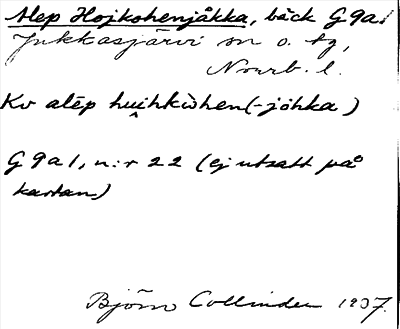 Alep Hojkohenjåkka, bäck G9a1
Jukkasjärvi sn o. tg,
Norrb. l.
Kv alēp huihkùhen(-jȯhka)
G9a1, n:r 22 (ej utsatt på
kartan)
Björn Collinder 1937.